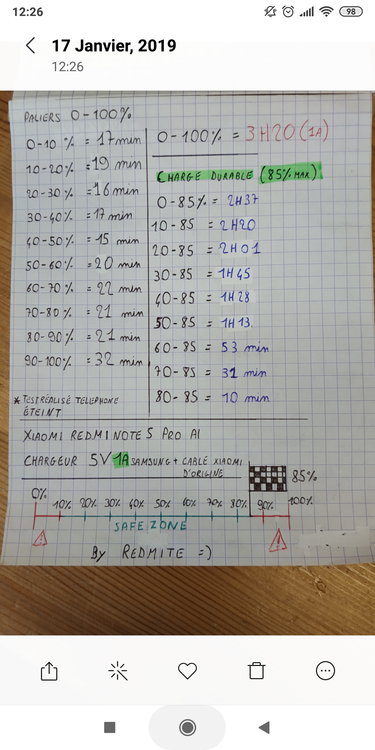 12:26
98
17 Janvier, 2019
12:26
PALIERS 0-100%
0-10 % = 17 min
10-20% = 19 min
20-30 % = 16 min
30-40% = 17 min
40-50% = 15 min
50-60% = 20 min
60-70 % = 22 min
70-80% = 21 min
80-90% = 21 min
90-100% = 32 min
* TEST RÉALISÉ TELEPHONE
ÉTEINT
0-100% = 3H20 (1A)
CHARGE DURABLE (85% MAX)
0-85% = 2H37
10-85 = 2H20
20-85 = 2H01
30-85 = 1H45
40-85 = 1H28
50-85 = 1H13
60-85 = 53 min
70-85 = 31 min
80-85 = 10 min
XIAOMI REDMI NOTE 5 PRO AI
CHARGEUR 5V 1A SAMSUNG + CABLE XIAOMI
D'ORIGINE
85%
0% 10% 20% 30% 40% 50% 60% 70% 80% 90% 100%
SAFE ZONE
! !
By REDMITE =)